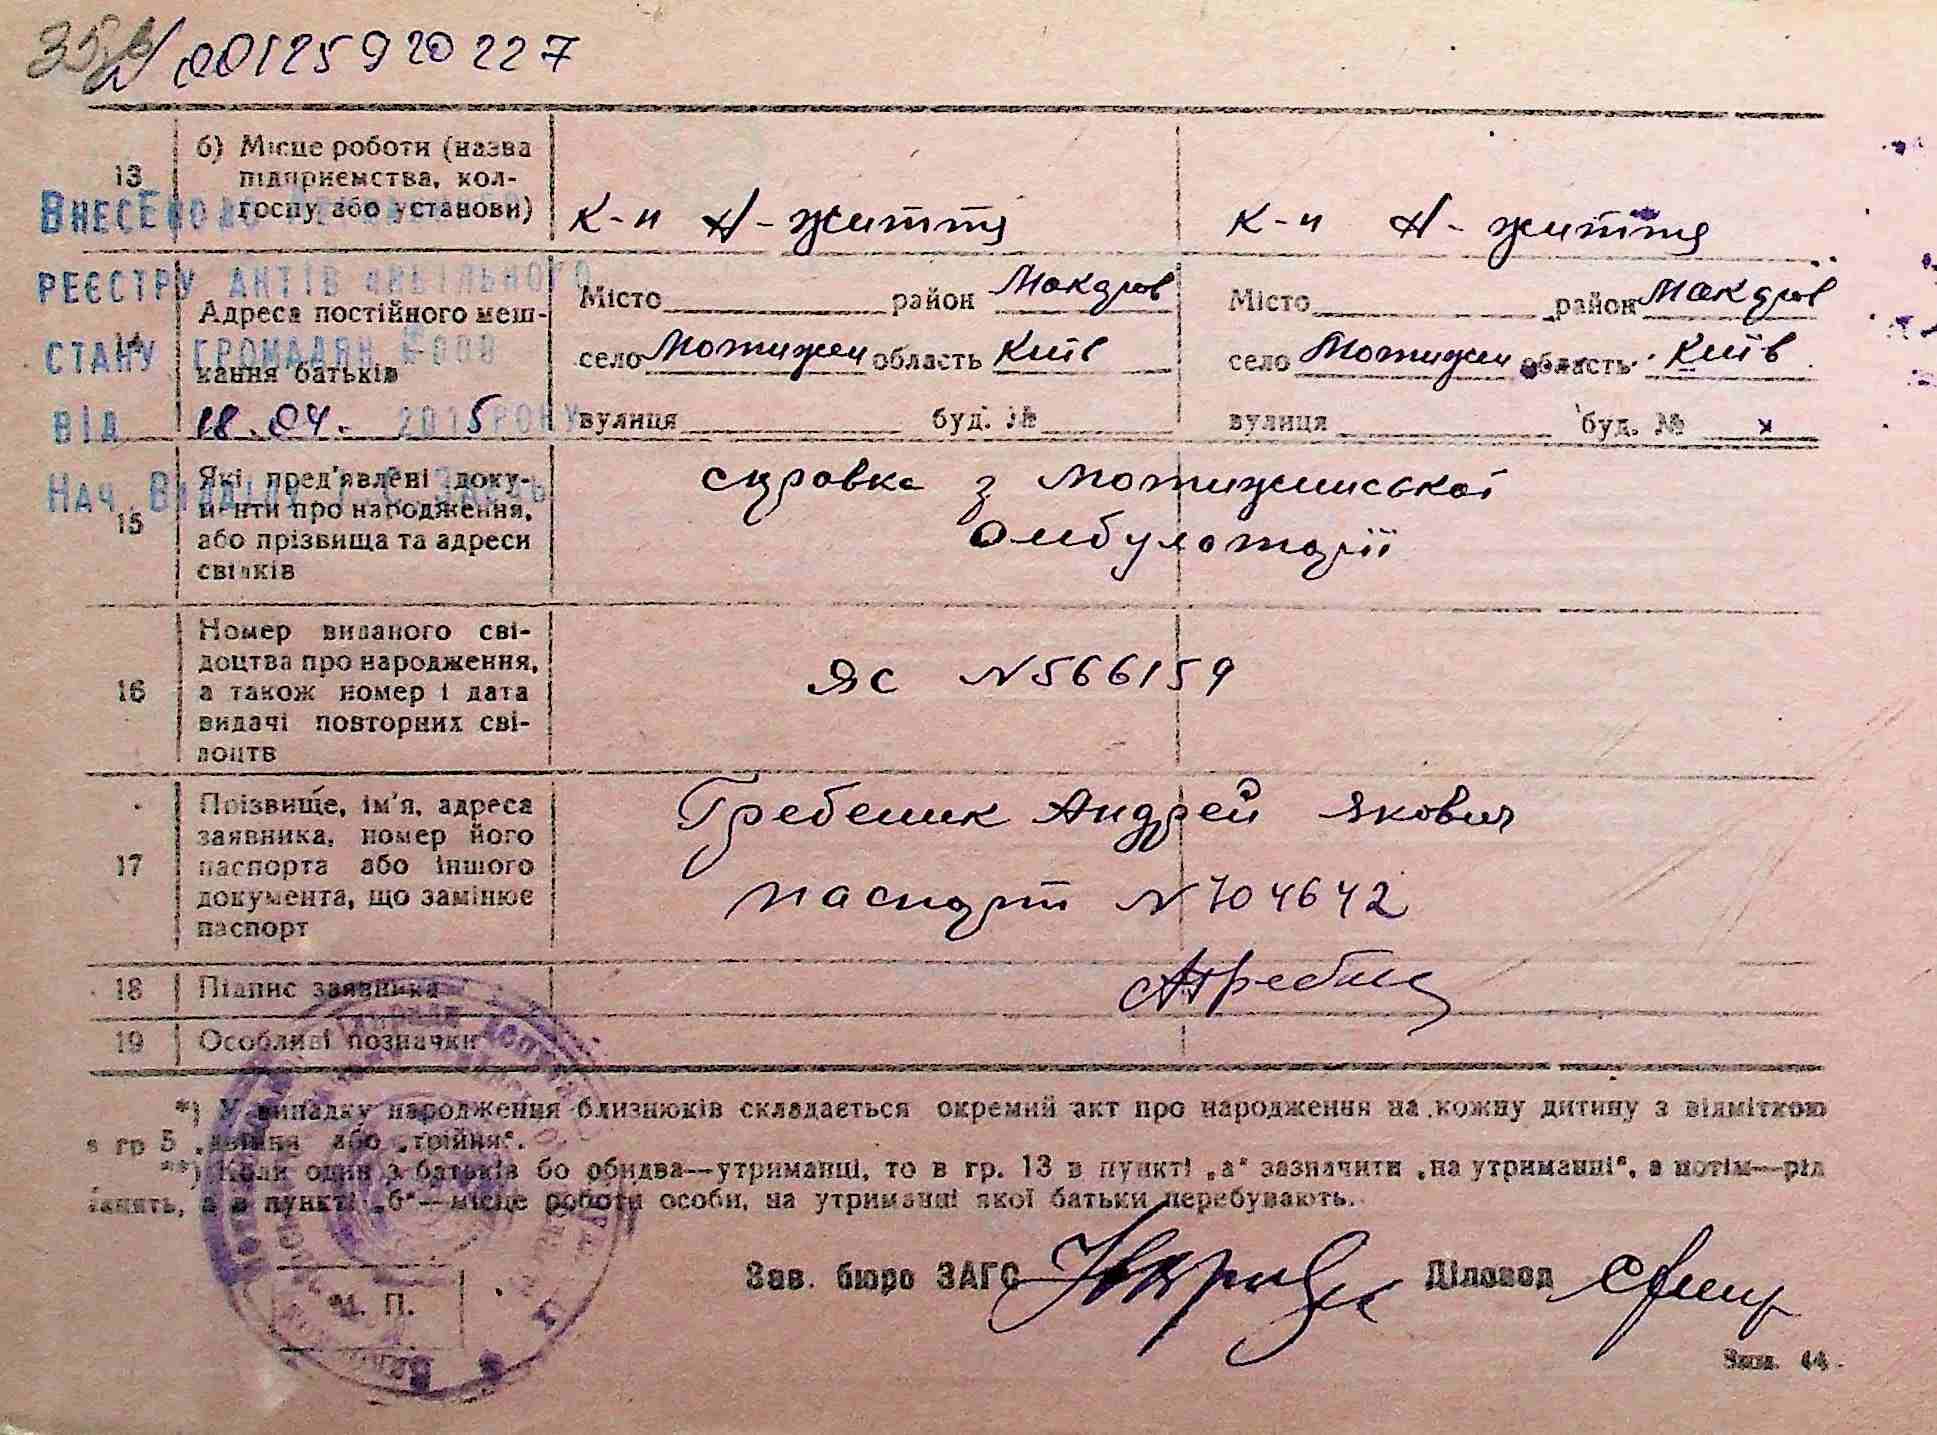 00125920227
13
б) Місце роботи (назва
підприємства, кол-
госпу або установи)
К-п Н-життя
К-п Н-життя
Внесено до
реєстру актів цивільного
стану громадян
від 18.04. 2015 року
Нач. Відділу
Адреса постійного меш-
кання батьків
Місто район Макарів
село Мотижин область Київ
вулиця буд. №
Місто район Макарів
село Мотижин область Київ
вулиця буд. № х
15
Які пред'явлені доку-
менти про народження,
або прізвища та адреси
свідків
справка з Мотижинської
амбулаторії
16
Номер виданого сві-
доцтва про народження,
а також номер і дата
видачі повторних сві-
доцтв
ЯС N 566159
17
Прізвище, ім'я, адреса
заявника, номер його
паспорта або іншого
документа, що замінює
паспорт
Гребеник Андрей Якович
паспорт N 704642
18
Підпис заявника
19
Особливі позначки
*) У випадку народження близнюків складається окремий акт про народження на кожну дитину з відміткою
в гр 5 „двійня або „трійня“.
**) Коли один з батьків бо обидва—утриманці, то в гр. 13 в пункті „а“ зазначити „на утриманці“, а потім—рід
занять, а в пункті „б“—місце роботи особи, на утриманні якої батьки перебувають.
М. П.
Зав. бюро ЗАГС
Діловод
Зам. 44